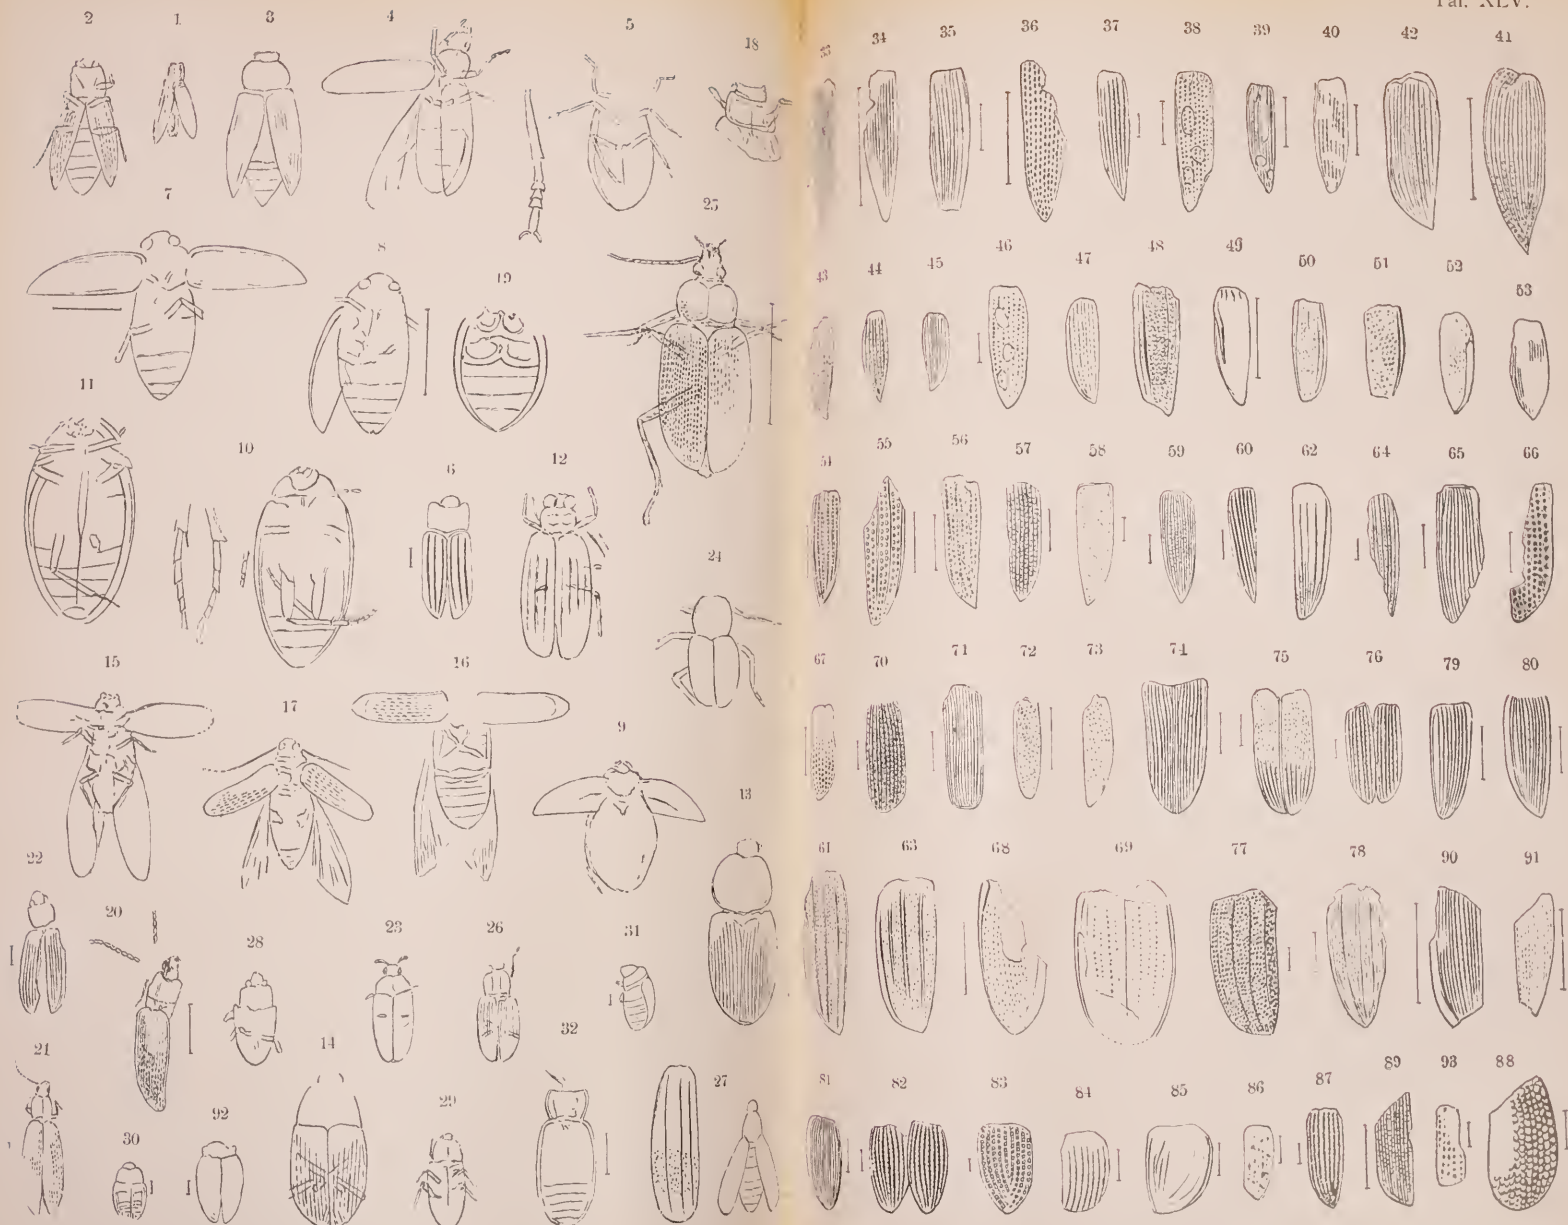 Taf. XLV.
2 1 3 4 5 18
7
25
8 19
11
10 6 12
24
15 16
17
9
13
22
20
28 23 26
31
32
21 14
27
29
30 92
33 34 35 36 37 38 39 40 42 41
43 44 45 46 47 48 49 50 51 52 53
54 55 56 57 58 59 60 62 64 65 66
67 70 71 72 73 74 75 76 79 80
61 63 68 69 77 78 90 91
81 82 83 84 85 86 87 89 93 88